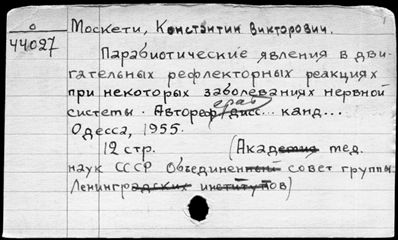 о
44027
Москети, Константин Викторович.
Парабиотические явления в дви-
гательных рефлекторных реакциях
при некоторых заболеваниях нервной
систеты. Автореферат дисс... канд...
Одесса, 1955.
12 стр. (Академия тед.
наук СССР Объединенный совет группы
Ленинградских институтов)